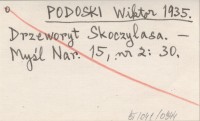 PODOSKI Wiktor 1935.
Drzeworyt Skoczylasa. —
Myśl Nar. 15, nr 2: 30.